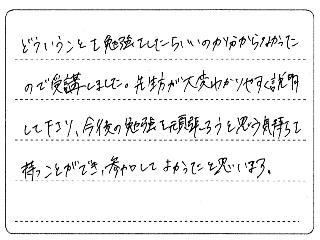 どういうことを勉強をしたらいいのか分からなかった
ので受講しました。先生方が大変わかりやすく説明
して下さり、今後の勉強を頑張ろうと思う気持ちを
持つことができ、参加してよかったと思います。